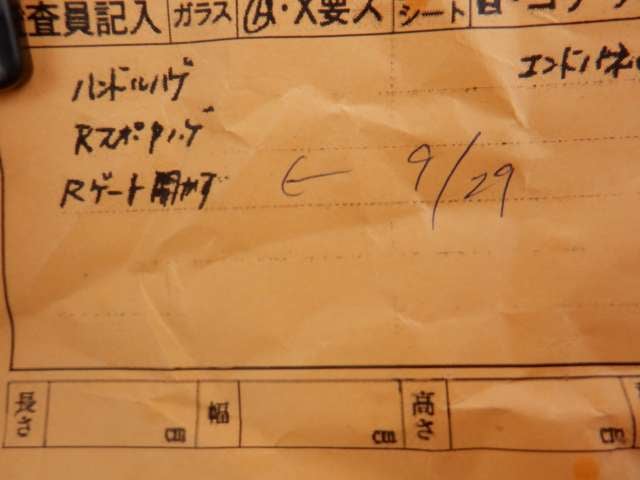 査員記入 ガラス Ⓐ・X要 シート
ハンドルハゲ エンドパネル
Rスポ タハゲ
Rゲート開かず ← 9/29
長さ cm 幅 cm 高さ cm